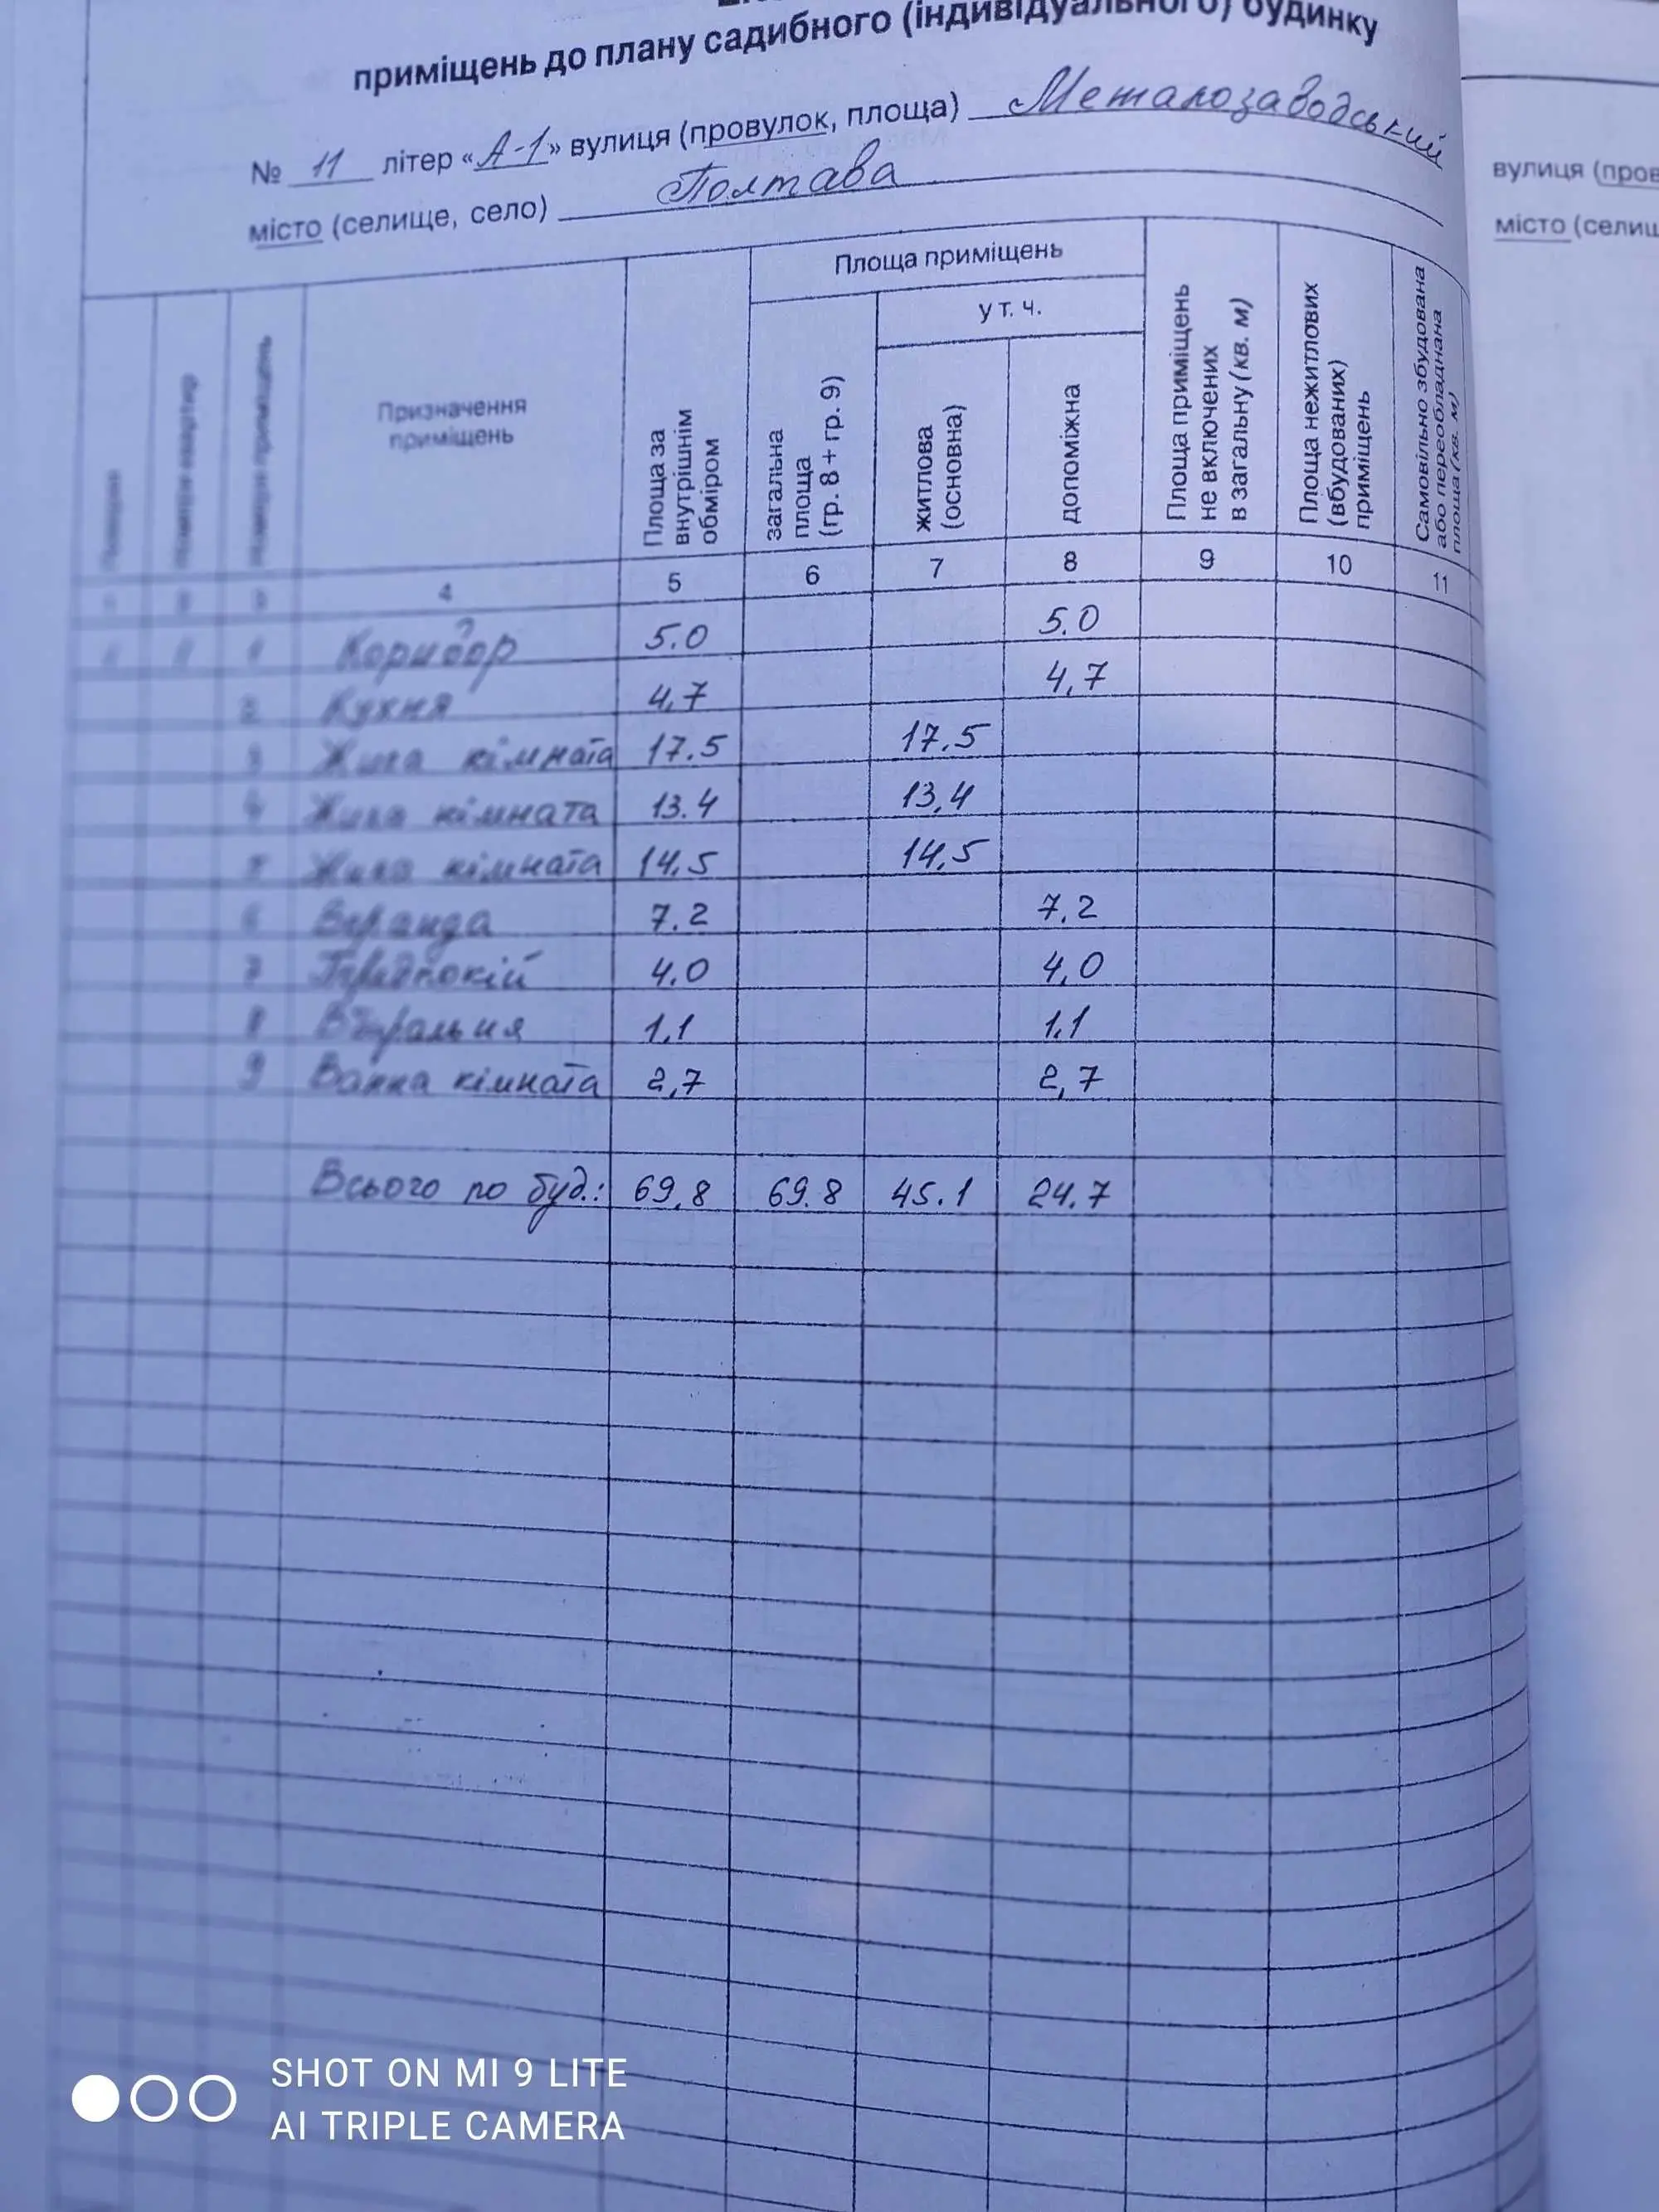 приміщень до плану садибного (індивідуального) будинку
№ 11 літер «А-1» вулиця (провулок, площа) Металозаводський
місто (селище, село) Полтава
вулиця (пров
місто (селищ
Призначення приміщень
Площа за внутрішнім обміром
Площа приміщень
у т. ч.
загальна площа (гр. 8 + гр. 9)
житлова (основна)
допоміжна
Площа приміщень не включених в загальну (кв. м)
Площа нежитлових (вбудованих) приміщень
Самовільно збудована або переобладнана площа (кв. м)
4 5 6 7 8 9 10 11
1 Коридор 5.0 5.0
2 Кухня 4,7 4,7
3 Жила кімната 17.5 17.5
4 Жила кімната 13.4 13,4
Жила кімната 14,5 14,5
Веранда 7.2 7.2
7 Передпокій 4.0 4,0
8 Вбиральня 1.1 1.1
9 Ванна кімната 2,7 2,7
Всього по буд.: 69,8 69.8 45.1 24.7
SHOT ON MI 9 LITE
AI TRIPLE CAMERA